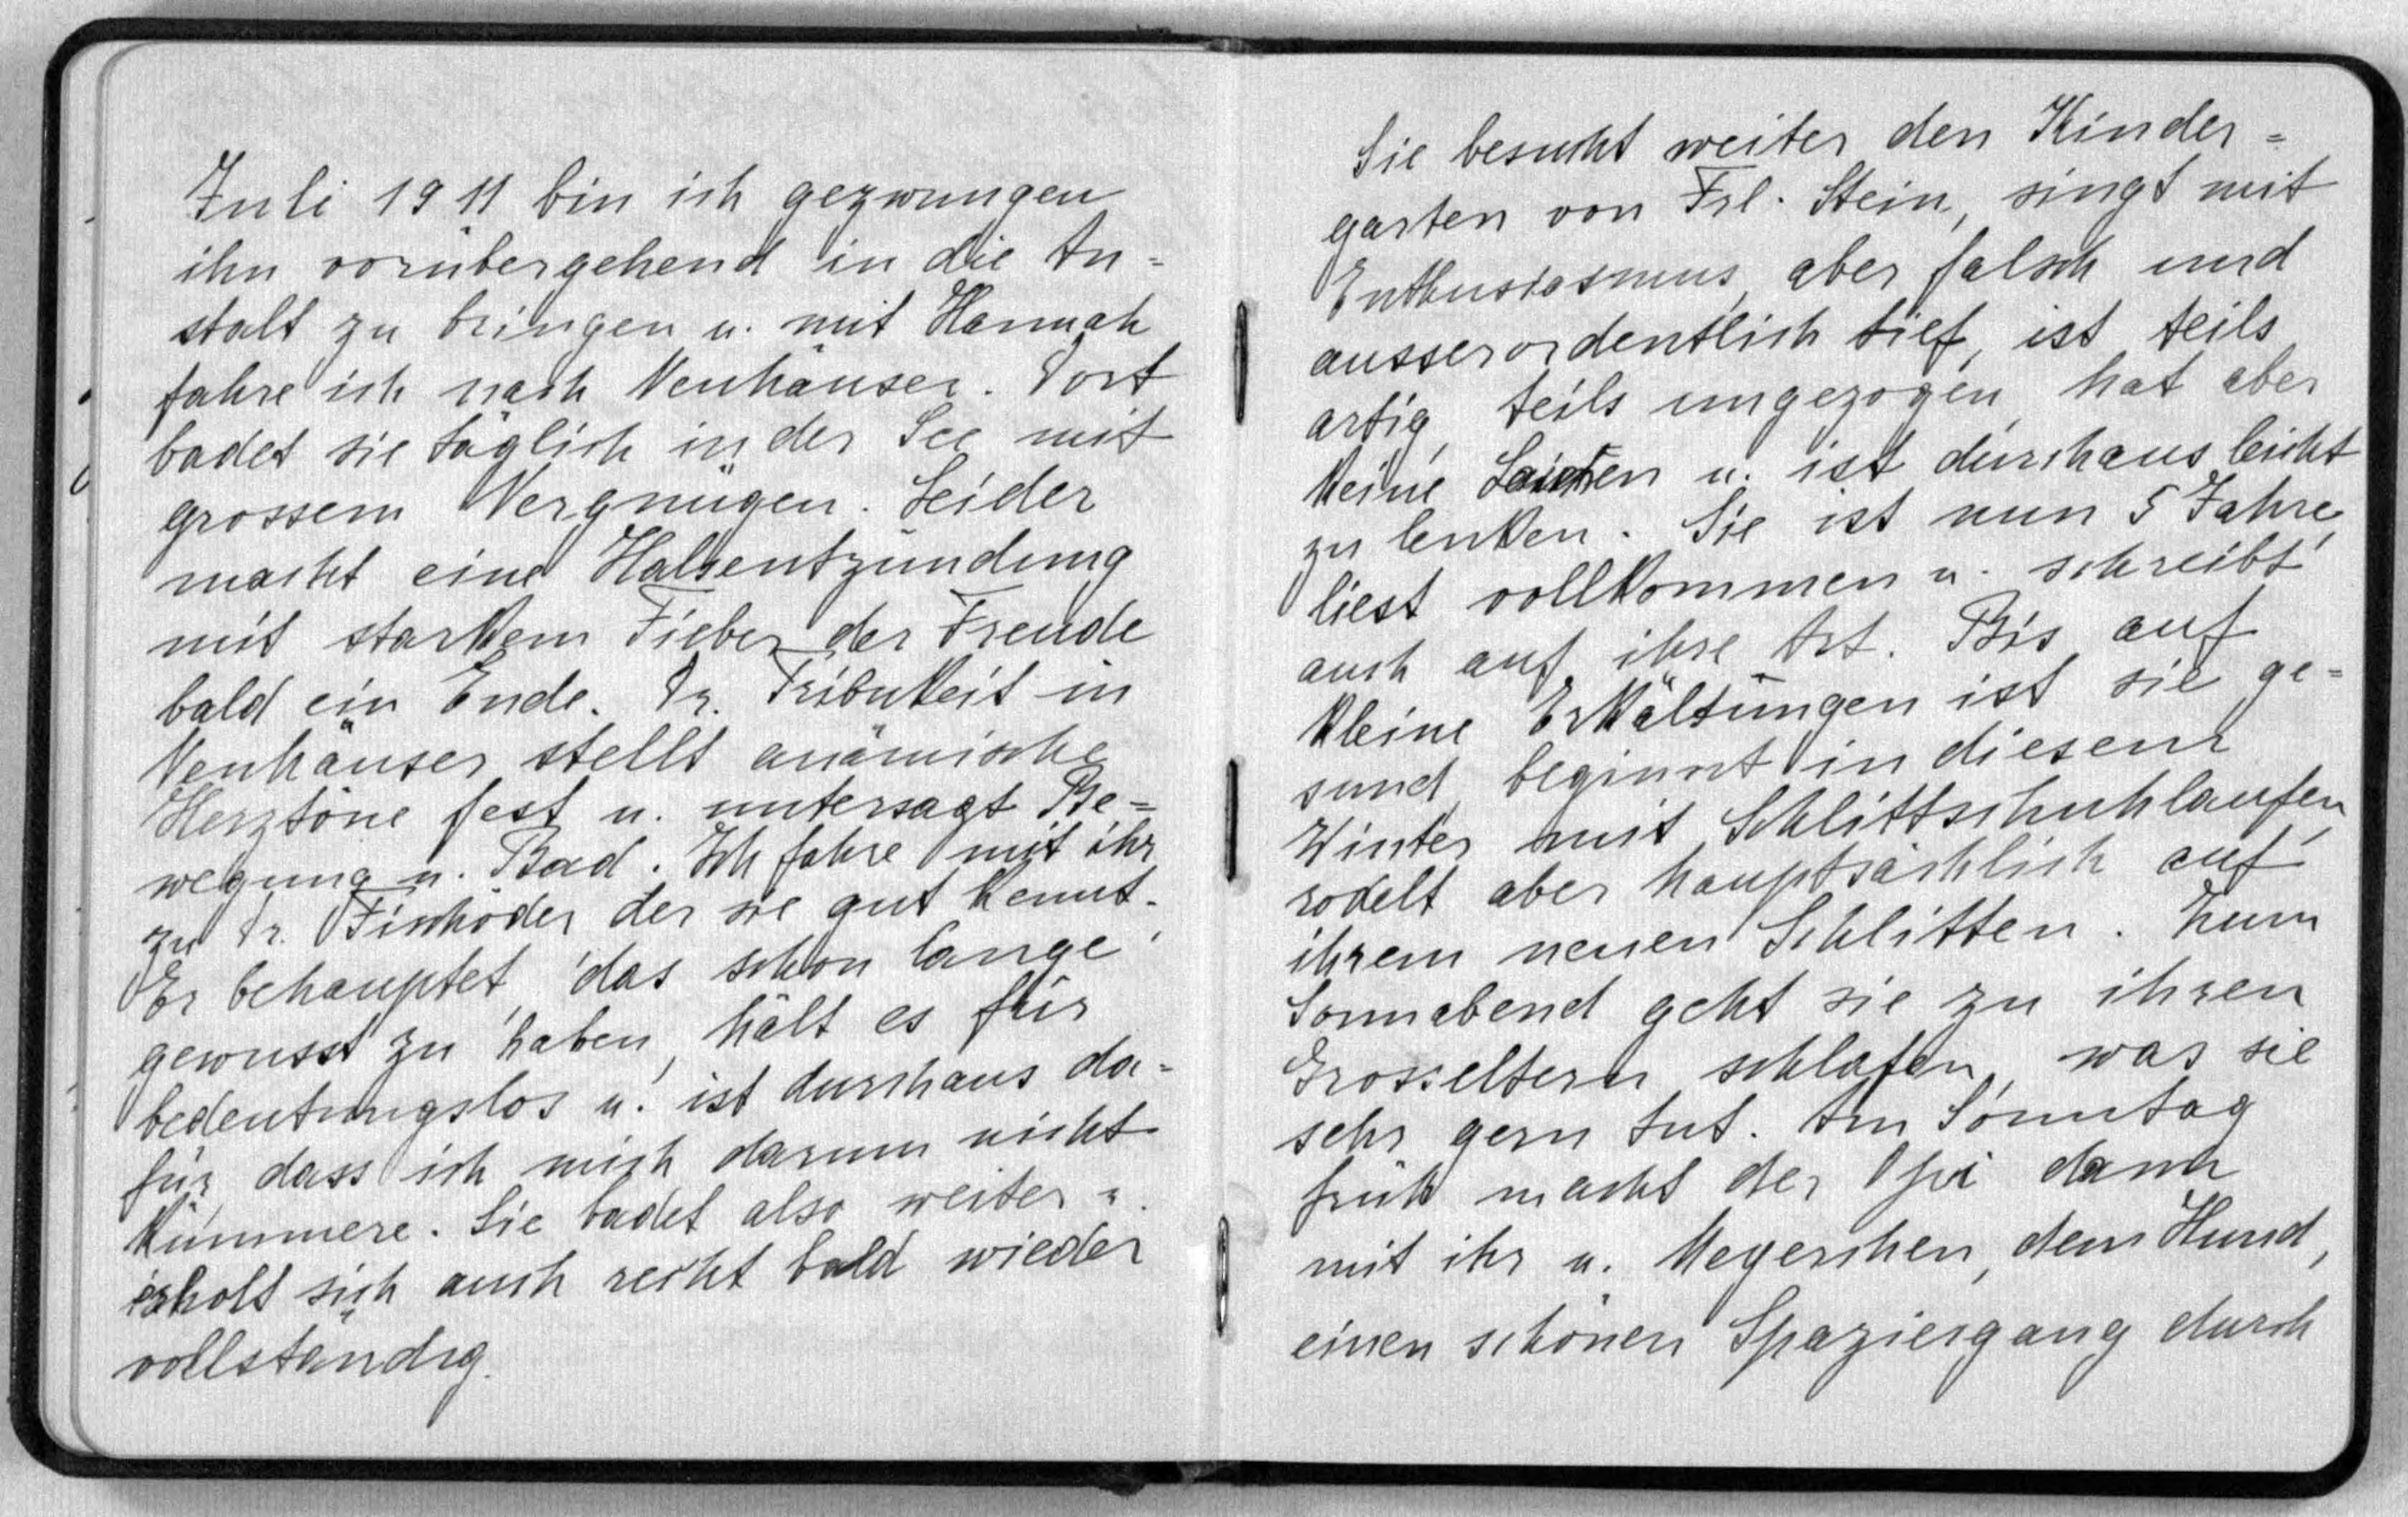 Juli 1911 bin ich gezwungen
ihn vorübergehend in die An=
stalt zu bringen u. mit Hannah
fahre ich nach Neuhäuser. Dort
badet sie täglich in der See mit
grossem Vergnügen. Leider
macht eine Halsentzündung
mit starkem Fieber der Freude
bald ein Ende. Dr. Tribukeit in
Neuhäuser stellt anämische
Herztöne fest u. untersagt Be=
wegung u. Bad. Ich fahre mit ihr
zu Dr. Fischöder der sie gut kennt.
Er behauptet, das schon lange
gewusst zu haben, hält es für
bedeutungslos u. ist durchaus da=
für, dass ich mich darum nicht
kümmere. Sie badet also weiter u.
erholt sich auch recht bald wieder
vollständig.
Sie besucht weiter den Kinder=
garten von Frl. Stein, singt mit
Enthusiasmus, aber falsch und
ausserordentlich tief, ist teils
artig, teils ungezogen, hat aber
keine Launen u. ist durchaus leicht
zu lenken. Sie ist nun 5 Jahre,
liest vollkommen u. schreibt
auch auf ihre Art. Bis auf
kleine Erkältungen ist sie ge=
sund, beginnt in diesem
Winter mit Schlittschuhlaufen,
rodelt aber hauptsächlich auf
ihrem neuen Schlitten. Zum
Sonnabend geht sie zu ihren
Grosseltern schlafen, was sie
sehr gern tut. Am Sonntag
früh macht der Opi dann
mit ihr u. Meyerchen, dem Hund,
einen schönen Spaziergang durch